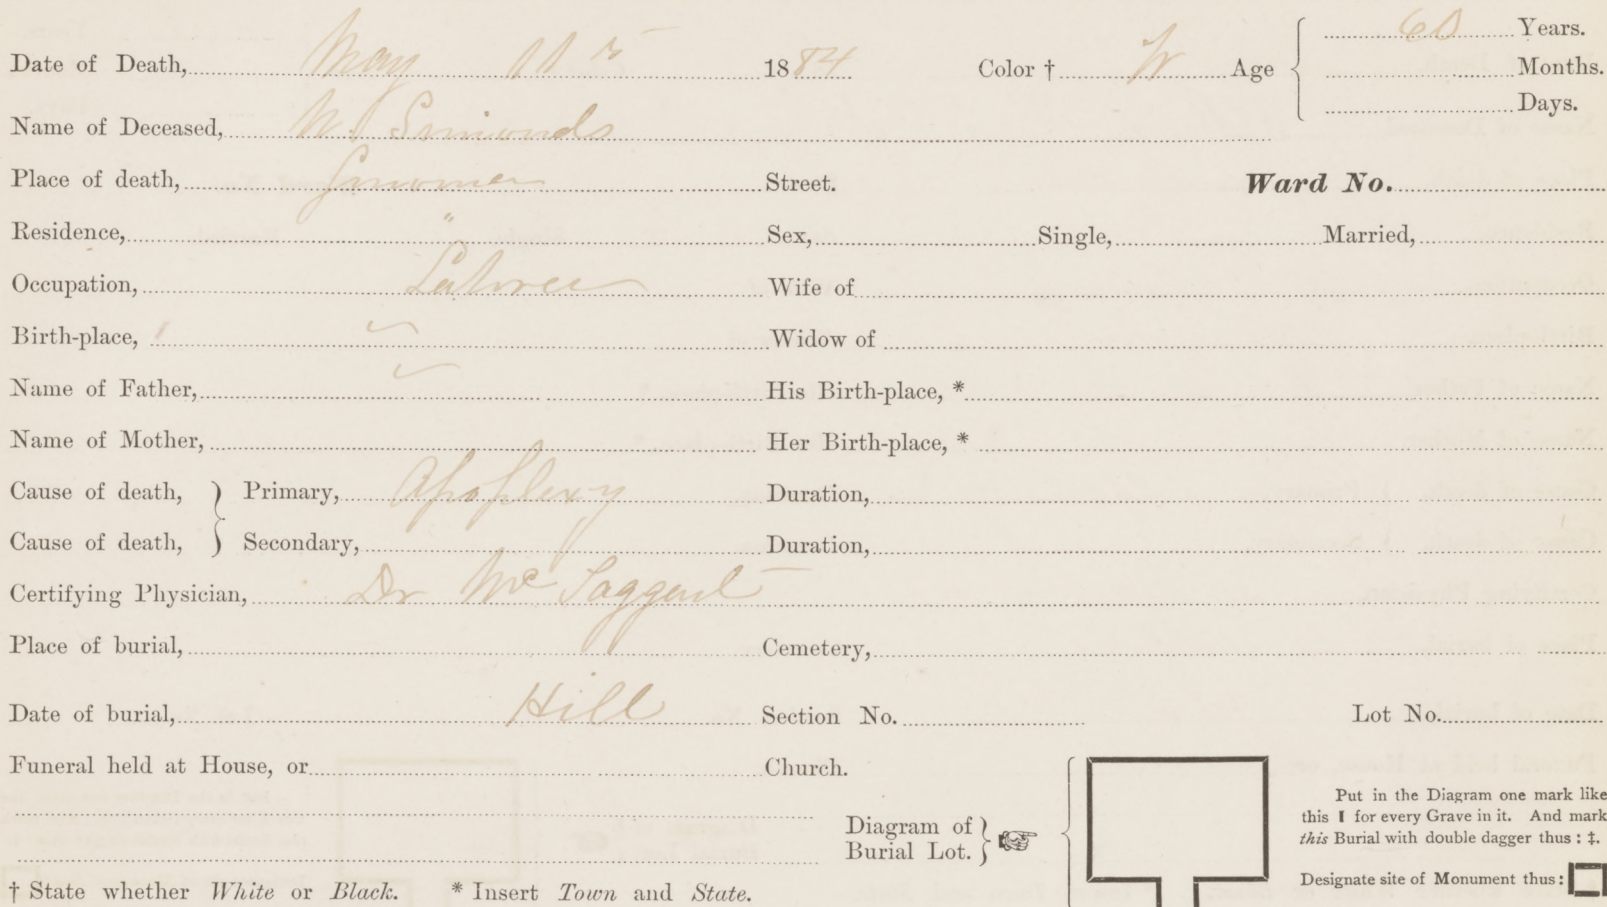 Date of Death, May 11th 1884 Color † W Age 60 Years.
Months.
Days.
Name of Deceased, W. Simonds
Place of death, Street. Ward No.
Residence, " Sex, Single, Married,
Occupation, Laborer Wife of
Birth-place, Widow of
Name of Father, His Birth-place, *
Name of Mother, Her Birth-place, *
Cause of death, } Primary, Apoplexy Duration,
Cause of death, } Secondary, Duration,
Certifying Physician, Dr Mc Taggert
Place of burial, Cemetery,
Date of burial, Hill Section No. Lot No.
Funeral held at House, or Church.
Diagram of Burial Lot. } ☞
Put in the Diagram one mark like
this I for every Grave in it. And mark
this Burial with double dagger thus : ‡.
Designate site of Monument thus :
† State whether White or Black. * Insert Town and State.